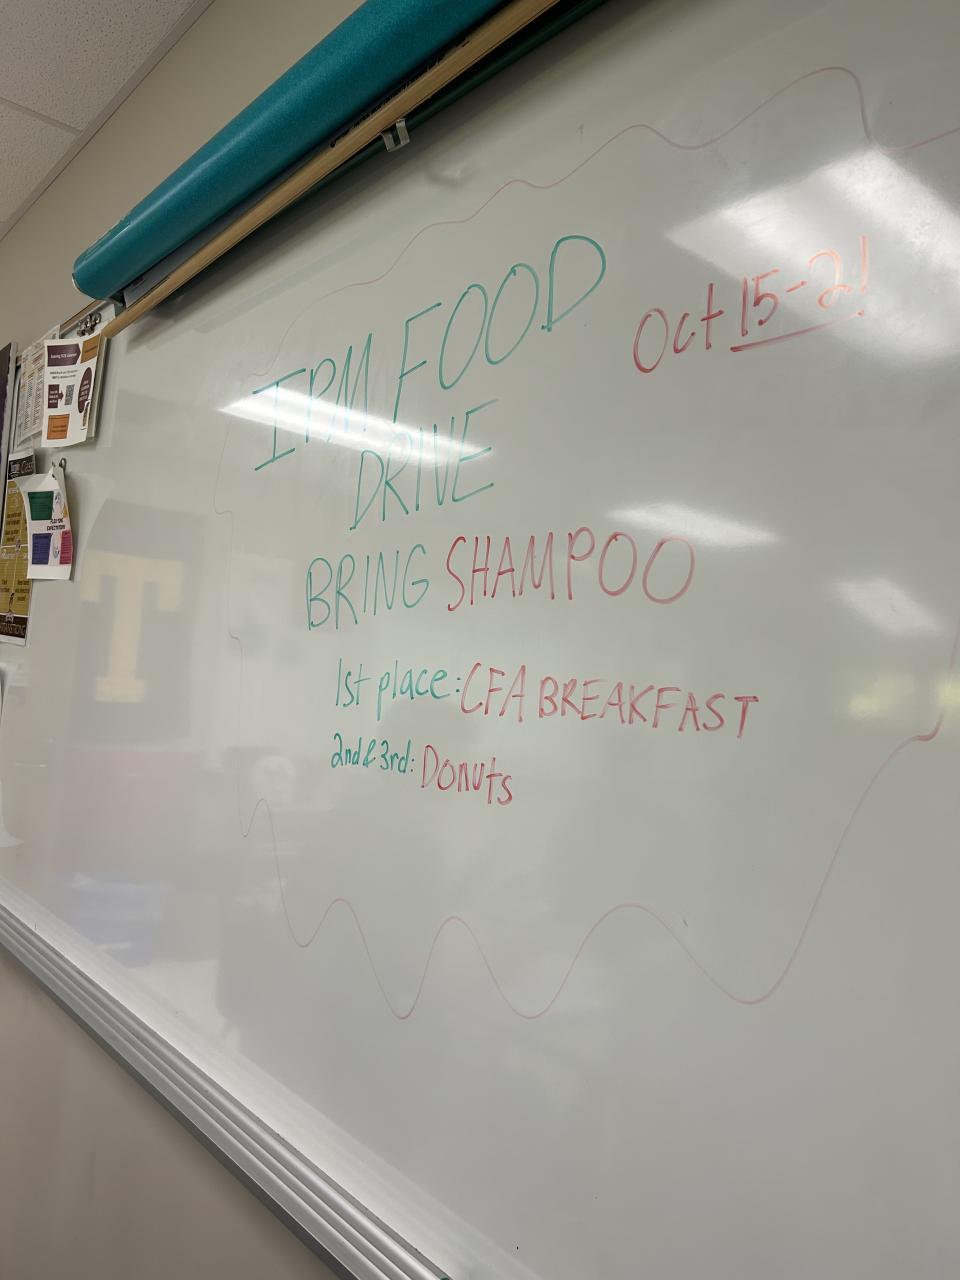 IPM FOOD
DRIVE
Oct 15-21
BRING SHAMPOO
1st place: CFA BREAKFAST
2nd & 3rd: Donuts
T